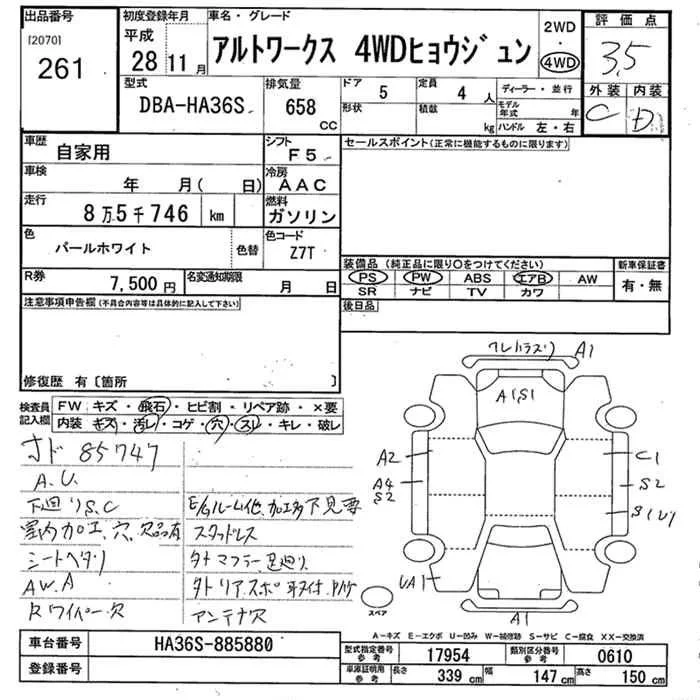 出品番号 初度登録年月 車名・グレード 2WD 評価点
[2070] 261 平成 28 11月 アルトワークス 4WDヒョウジュン ・ 4WD 3,5
型式 排気量 ドア 定員 ディーラー・並行 外装 内装
DBA-HA36S 658 CC 5 4人 C D
形状 積載 kg モデル年式 年 ハンドル 左・右
車歴 自家用 シフト F5 セールスポイント(正常に機能するものに限ります)
車検 年 月( 日) 冷房 AAC
走行 8万5千746 km 燃料 ガソリン
色 パールホワイト 色替 色コード Z7T
装備品 (純正品に限り○をつけてください) 新車保証書
R券 7,500円 名変通知期限 月 日 PS PW ABS エアB AW 有・無
SR ナビ TV カワ
注意事項申告欄(不具合内容等は具体的に記入して下さい) 後日品
修復歴 有〔箇所 〕
検査員記入欄 FW キズ・飛石・ヒビ割・リペア跡・×要
内装 キズ・汚レ・コゲ・穴・スレ・キレ・破レ
85747
A.U.
下廻りS,C E/Gルーム他、加工多下見要
室内加工、穴、欠品有 スタッドレス
シートヘタリ 外マフラー足廻り
AW.A
Rワイパー欠 アンテナ欠
A1
A1S1
A2 C1
A4 S2 S2
UA1
スペア A1
A-キズ E-エクボ U-凹み W-補修跡 S-サビ C-腐食 XX-交換済
車台番号 HA36S-885880 型式指定番号 参考 17954 類別区分番号 参考 0610
登録番号 車庫証明用 参考 長さ 339 cm 幅 147 cm 高さ 150 cm